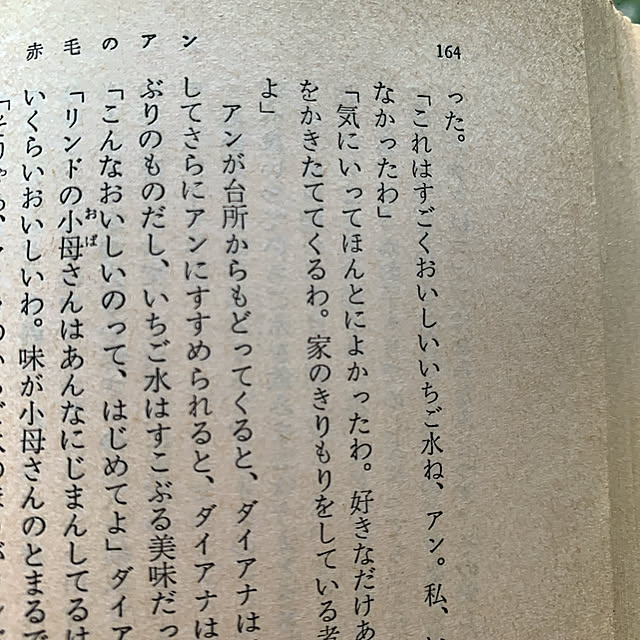 164
赤毛のアン
った。
「これはすごくおいしいいちご水ね、アン。私、
なかったわ」
「気にいってほんとによかったわ。好きなだけあ
をかきたててくるわ。家のきりもりをしている者
よ」
アンが台所からもどってくると、ダイアナは
してさらにアンにすすめられると、ダイアナは
ぶりのものだし、いちご水はすこぶる美味だっ
「こんなおいしいのって、はじめてよ」ダイア
「リンドの小母さんはあんなにじまんしてるけ
おば
いくらいおいしいわ。味が小母さんのとまるで